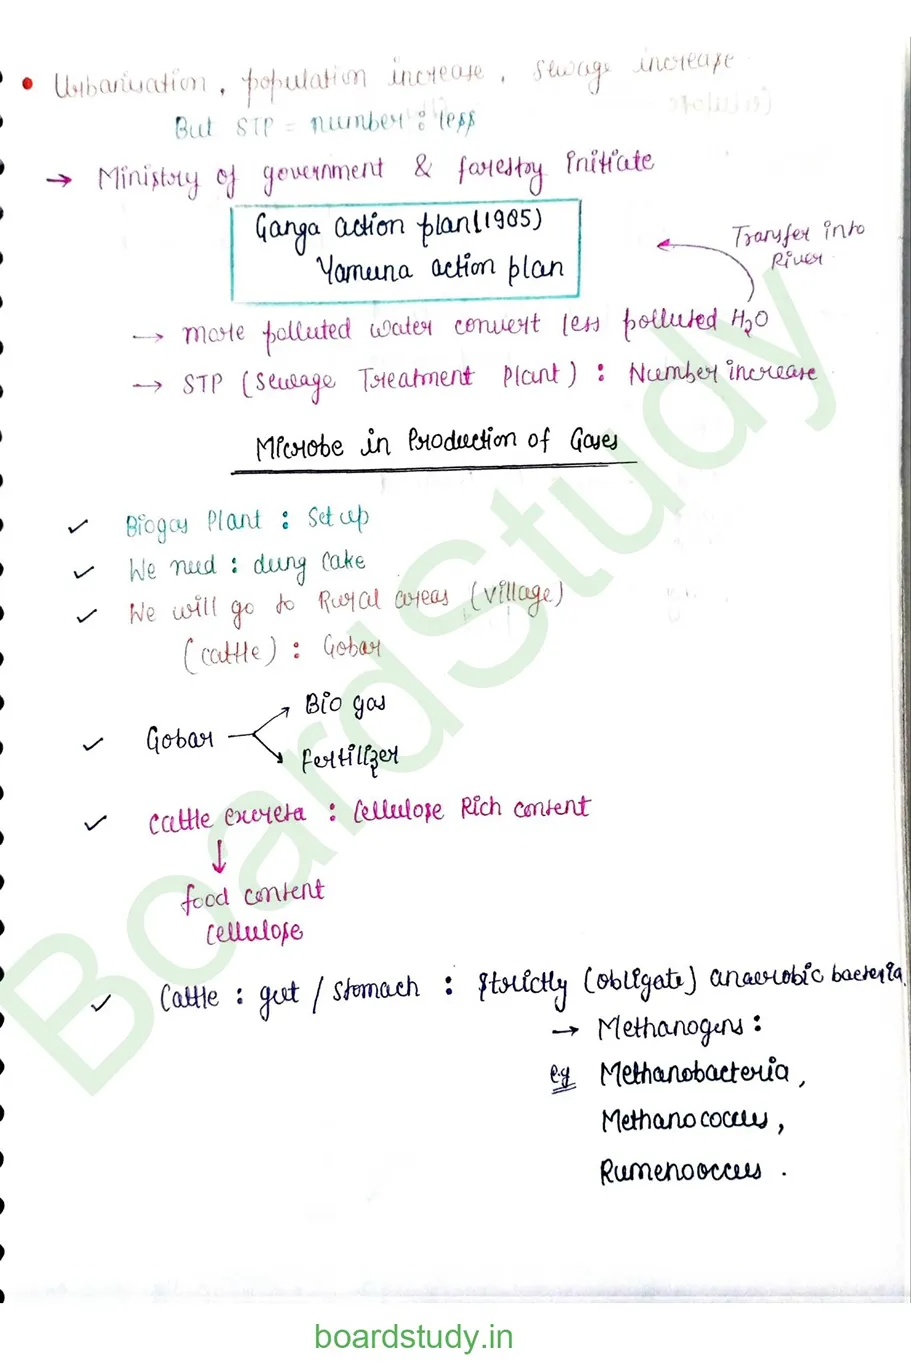 • Urbanisation, population increase, sewage increase
But STP = number : less
→ Ministry of government & forestry initiate
Ganga action plan (1985)
Yamuna action plan
Transfer into
River
→ more polluted water convert less polluted H2O
→ STP (Sewage Treatment Plant) : Number increase
Microbe in Production of Gases
✓ Biogas Plant : Set up
✓ We need : dung cake
✓ We will go to Rural areas (village)
(cattle) : Gobar
Bio gas
✓ Gobar
Fertilizer
✓ cattle excreta : Cellulose Rich content
↓
food content
cellulose
✓ Cattle : gut / stomach : strictly (obligate) anaerobic bacteria.
→ Methanogens :
e.g Methanobacteria,
Methanococcus,
Rumenococcus .
BoardStudy
boardstudy.in